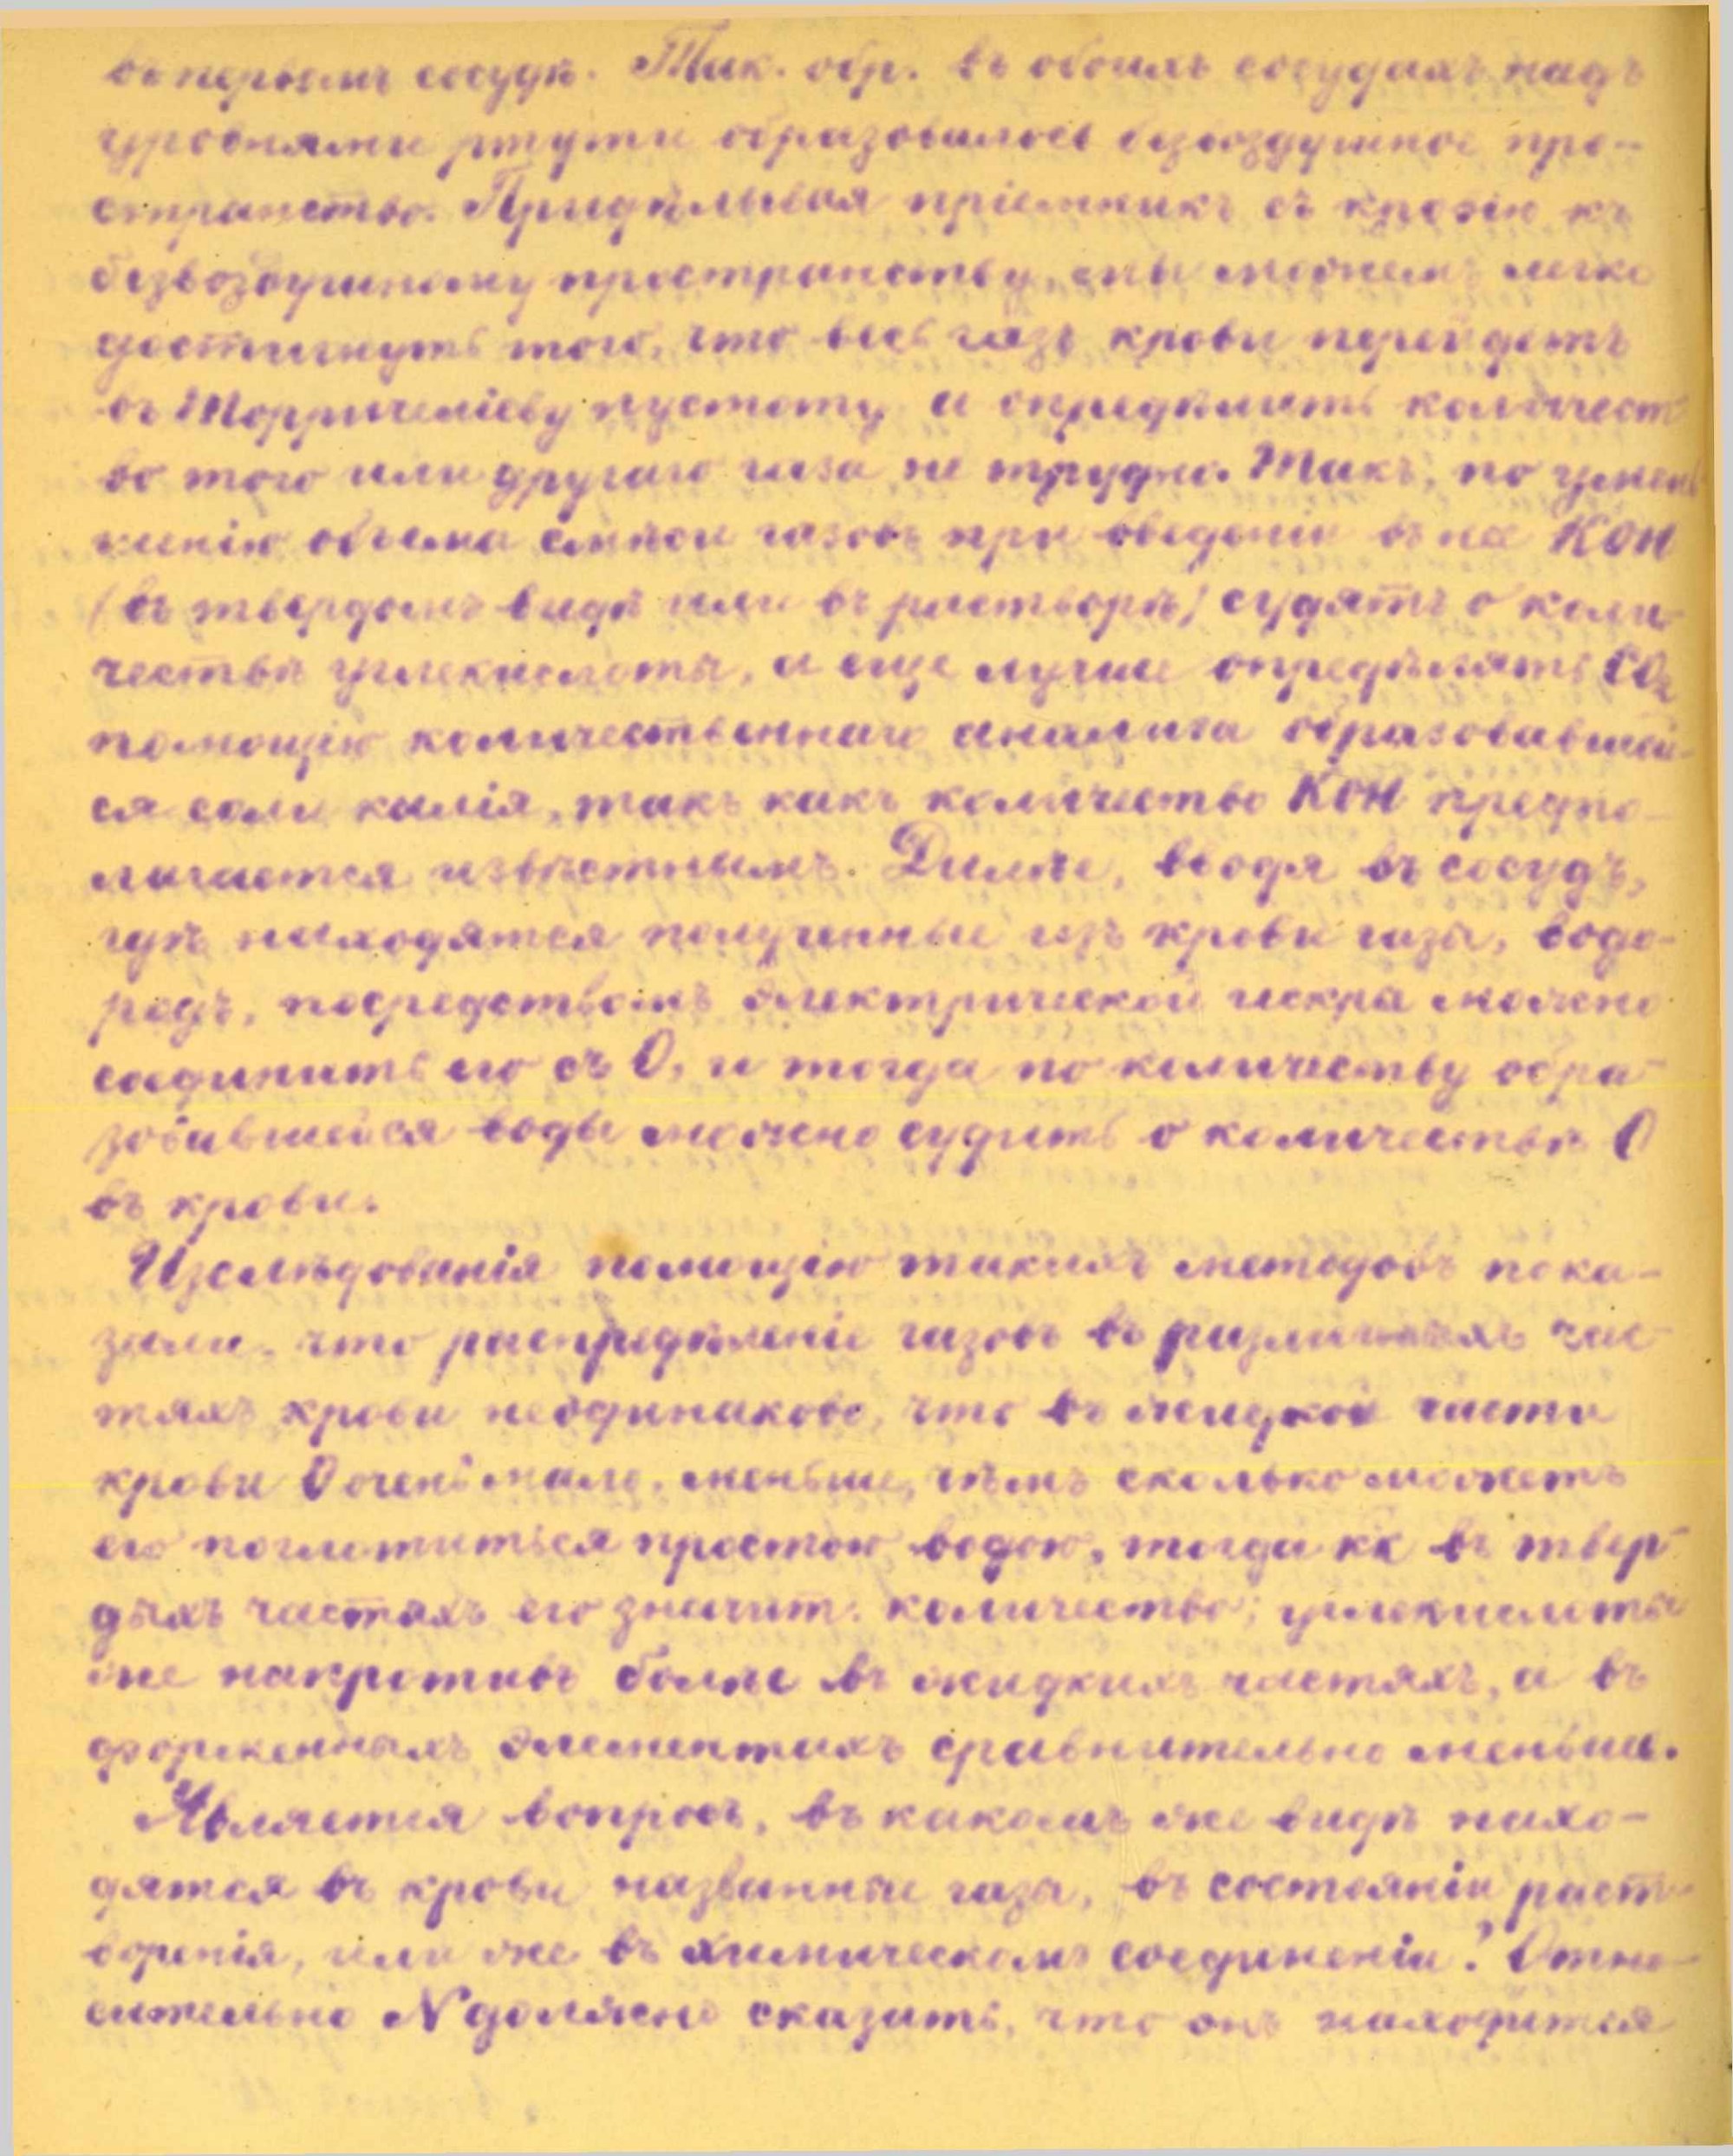 въ первомъ сосудѣ. Так. обр. въ обоихъ сосудахъ надъ
уровнями ртути образовалось безвоздушное про-
странство. Придѣлывая пріемникъ съ кровію къ
безвоздушному пространству, мы можемъ легко
достигнуть того, что весь газъ крови перейдетъ
въ Торричеліеву пустоту и опредѣлить количест
во того или другаго газа не трудно. Такъ, по умень
шенію объема смѣси газовъ при введеніи въ нее КОН
(въ твердомъ видѣ или въ растворѣ) судятъ о коли-
чествѣ углекислоты, а еще лучше опредѣлять CO₂
помощію количественнаго анализа образовавшей-
ся соли калія, такъ какъ количество КОН предпо-
лагается извѣстнымъ. Далѣе, вводя въ сосудъ,
гдѣ находятся полученные изъ крови газы, водо-
родъ, посредствомъ электрической искры можно
соединить его съ О, и тогда по количеству обра-
зовавшейся воды можно судить о количествѣ О
въ крови.
Изслѣдованія помощію такихъ методовъ пока-
зали, что распредѣленіе газовъ въ различныхъ час-
тяхъ крови неодинаково, что въ жидкой части
крови О очень мало, меньше, чѣмъ сколько можетъ
его поглотиться простою водою, тогда кк въ твер-
дыхъ частяхъ его значит. количество; углекислоты
же напротивъ болѣе въ жидкихъ частяхъ, а въ
форменныхъ элементахъ сравнительно меньше.
Является вопросъ, въ какомъ же видѣ нахо-
дятся въ крови названные газы, въ состояніи раст-
воренія, или же въ химическомъ соединеніи? Отно-
сительно N должно сказать, что онъ находится